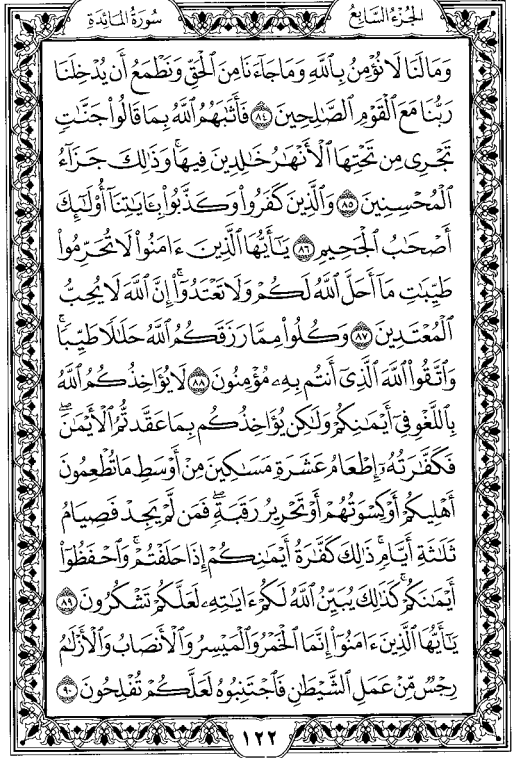 الجزء السابع
سورة المائدة
وَمَا لَنَا لَا نُؤْمِنُ بِٱللَّهِ وَمَا جَآءَنَا مِنَ ٱلْحَقِّ وَنَطْمَعُ أَن يُدْخِلَنَا
رَبُّنَا مَعَ ٱلْقَوْمِ ٱلصَّٰلِحِينَ ٨٤ فَأَثَٰبَهُمُ ٱللَّهُ بِمَا قَالُوا۟ جَنَّٰتٍ
تَجْرِى مِن تَحْتِهَا ٱلْأَنْهَٰرُ خَٰلِدِينَ فِيهَا ۚ وَذَٰلِكَ جَزَآءُ
ٱلْمُحْسِنِينَ ٨٥ وَٱلَّذِينَ كَفَرُوا۟ وَكَذَّبُوا۟ بِـَٔايَٰتِنَآ أُو۟لَٰٓئِكَ
أَصْحَٰبُ ٱلْجَحِيمِ ٨٦ يَٰٓأَيُّهَا ٱلَّذِينَ ءَامَنُوا۟ لَا تُحَرِّمُوا۟
طَيِّبَٰتِ مَآ أَحَلَّ ٱللَّهُ لَكُمْ وَلَا تَعْتَدُوٓا۟ ۚ إِنَّ ٱللَّهَ لَا يُحِبُّ
ٱلْمُعْتَدِينَ ٨٧ وَكُلُوا۟ مِمَّا رَزَقَكُمُ ٱللَّهُ حَلَٰلًا طَيِّبًا ۚ
وَٱتَّقُوا۟ ٱللَّهَ ٱلَّذِىٓ أَنتُم بِهِۦ مُؤْمِنُونَ ٨٨ لَا يُؤَاخِذُكُمُ ٱللَّهُ
بِٱللَّغْوِ فِىٓ أَيْمَٰنِكُمْ وَلَٰكِن يُؤَاخِذُكُم بِمَا عَقَّدتُّمُ ٱلْأَيْمَٰنَ ۖ
فَكَفَّٰرَتُهُۥٓ إِطْعَامُ عَشَرَةِ مَسَٰكِينَ مِنْ أَوْسَطِ مَا تُطْعِمُونَ
أَهْلِيكُمْ أَوْ كِسْوَتُهُمْ أَوْ تَحْرِيرُ رَقَبَةٍ ۖ فَمَن لَّمْ يَجِدْ فَصِيَامُ
ثَلَٰثَةِ أَيَّامٍ ۚ ذَٰلِكَ كَفَّٰرَةُ أَيْمَٰنِكُمْ إِذَا حَلَفْتُمْ ۚ وَٱحْفَظُوٓا۟
أَيْمَٰنَكُمْ ۚ كَذَٰلِكَ يُبَيِّنُ ٱللَّهُ لَكُمْ ءَايَٰتِهِۦ لَعَلَّكُمْ تَشْكُرُونَ ٨٩
يَٰٓأَيُّهَا ٱلَّذِينَ ءَامَنُوٓا۟ إِنَّمَا ٱلْخَمْرُ وَٱلْمَيْسِرُ وَٱلْأَنصَابُ وَٱلْأَزْلَٰمُ
رِجْسٌ مِّنْ عَمَلِ ٱلشَّيْطَٰنِ فَٱجْتَنِبُوهُ لَعَلَّكُمْ تُفْلِحُونَ ٩٠
١٢٢